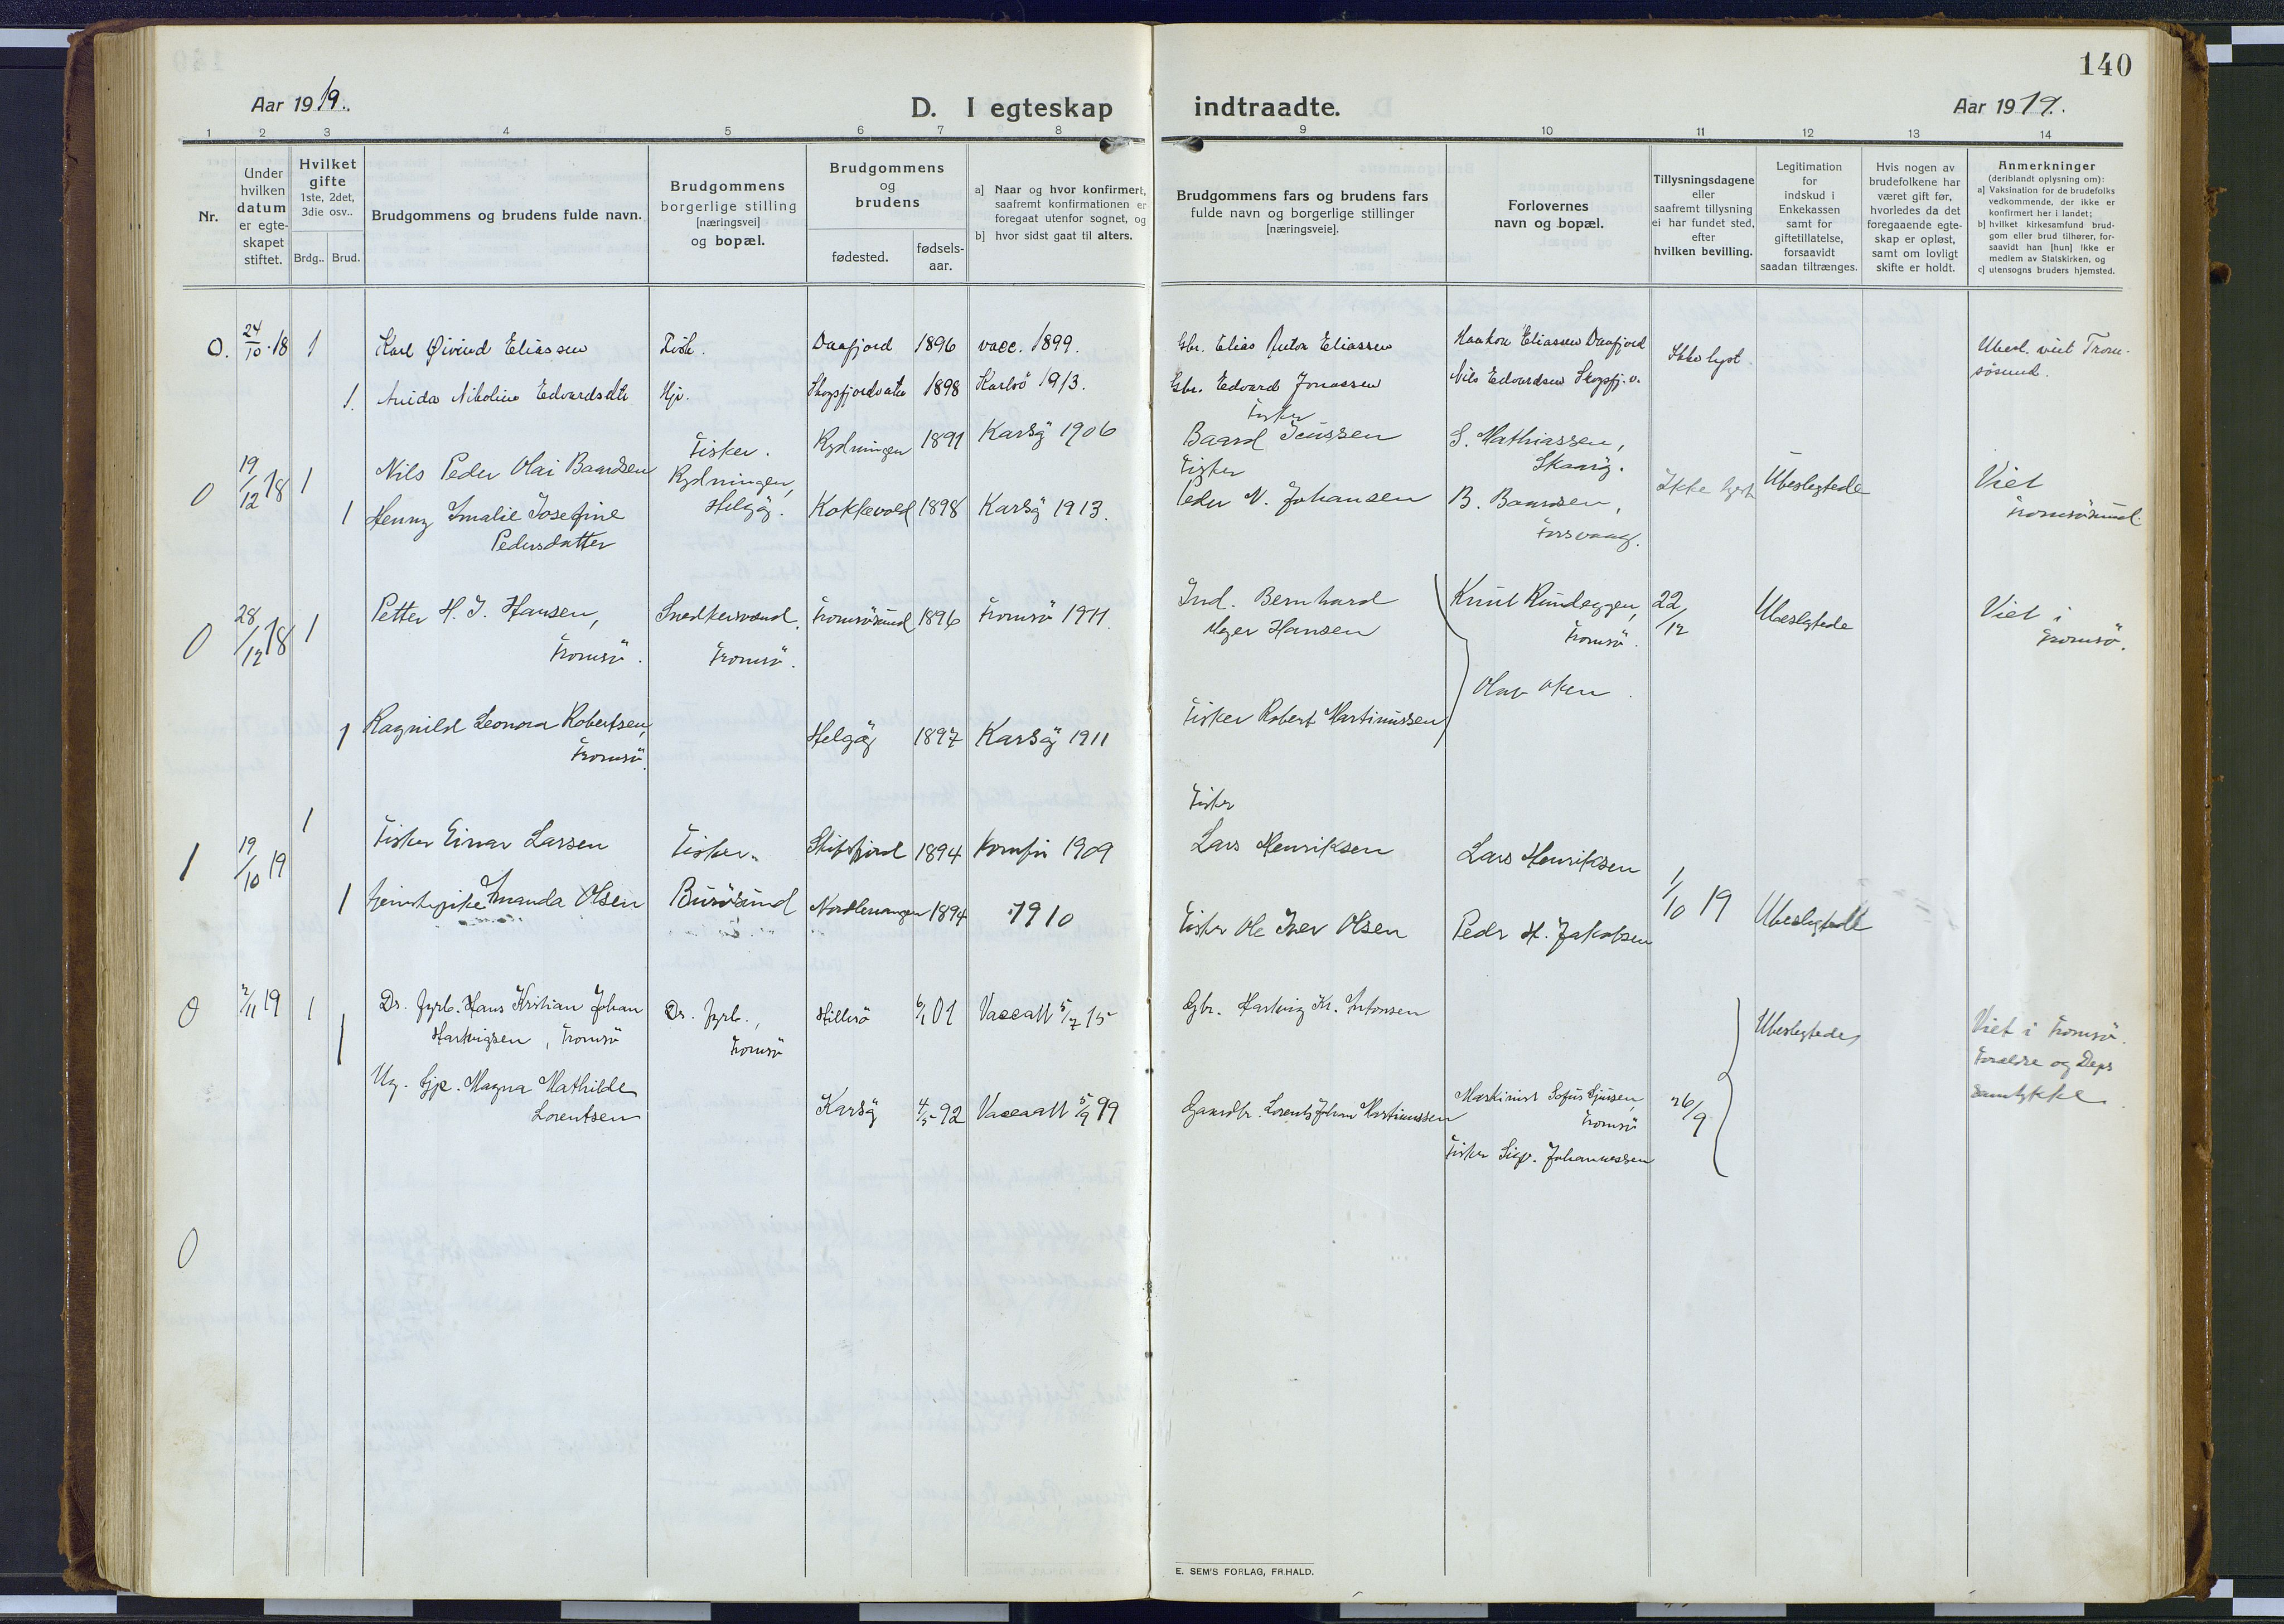 140
Aar 1919.
D. I egteskap
indtraadte.
Aar 1919.
1 2 3 4 5 6 7 8 9 10 11 12 13 14
Nr.
Under
hvilken
datum
er egte-
skapet
stiftet.
Hvilket
gifte
1ste, 2det,
3die osv..
Brdg.. Brud.
Brudgommens og brudens fulde navn.
Brudgommens
borgerlige stilling
[næringsvei]
og bopæl.
Brudgommens
og
brudens
fødested.
fødsels-
aar.
a] Naar og hvor konfirmert,
saafremt konfirmationen er
foregaat utenfor sognet, og
b] hvor sidst gaat til alters.
Brudgommens fars og brudens fars
fulde navn og borgerlige stillinger
[næringsveie].
Forlovernes
navn og bopæl.
Tillysningsdagene
eller
saafremt tillysning
ei har fundet sted,
efter
hvilken bevilling.
Legitimation
for
indskud i
Enkekassen
samt for
giftetillatelse,
forsaavidt
saadan tiltrænges.
Hvis nogen av
brudefolkene har
været gift før,
hvorledes da det
foregaaende egte-
skap er opløst,
samt om lovligt
skifte er holdt.
Anmerkninger
(deriblandt oplysning om):
a] Vaksination for de brudefolks
vedkommende, der ikke er
konfirmert her i landet;
b] hvilket kirkesamfund brud-
gom eller brud tilhører, for-
saavidt han [hun] ikke er
medlem av Statskirken, og
c] utensogns bruders hjemsted.
0. 24/10.18 1 Karl Øivind Eliassen Fisk. Daafjord 1896 vacc. 1899. Gbr. Elias Anton Eliassen Haakon Eliassen Daafjord Ikke lyst. Ubesl. viet Trom-
sösund.
1. Nikoline Edvardsdtr Skogsfjordvatn 1898 Karlsö 1913. Gbr. Edvard Jonassen Nils Edvardsen Skogsfj.v.
0 19/12 18 1 Nils Peder Olai Baardsen Fisker. Rydningen 1891 Karlsöy 1906 Fisker
Baard Jenssen S. Mathiassen,
Rydningen,
Helgöy. Ikke lyst Ubeslegtede Viet
Tromsösund.
1 Henny Amalie Josefine
Pedersdatter Koklevold 1898 Karlsöy 1913. Fisker
Peder N. Johansen B. Baardsen,
0 28/12 18 1 Petter H. J. Hansen,
Tromsö. Snedkersvend,
Tromsö. Tromsösund 1896 Tromsö 1911. Ind. Bernhard
Meyer Hansen Knut Rundeggen,
Tromsö. 22/12 Ubeslegtede Viet i
Tromsö.
1 Ragnild Leonora Robertsen,
Tromsö. Helgöy 1897 Karlsöy 1911 Fisker Robert Martinussen
1 19/10 19 1 Fisker Einar Larsen Fisker. Skibsfjord 1894 1909 Fisker
Lars Henriksen Lars Henriksen 1/10 19 Ubeslegtede
1 Tjenestepike Amanda Olsen Burösund Nordlenangen 1894 1910 Fisker Ole Iver Olsen Peder H. Jakobsen
0 2/11 19 1 Dr. fyrb. Hans Kristian Johan
Hartvigsen, Tromsö Dr. fyrb.,
Tromsö Hillesö 6/1 01 Vaccatt 5/7 15 Gbr. Hartvig Kr. Antonsen Ubeslegtede Viet i Tromsö.
Foræeldre og Deps
samtykke.
1 Ug. tjp. Magna Mathilde
Lorentsen Karlsöy 4/5 92 Vaccatt 5/9 99 Gaardbr. Lorents Johan Martinussen Maskinist Sofus Sjursen,
Tromsö 26/9
Fisker Sigv. Johannessen
0
E. SEM'S FORLAG, FR.HALD.